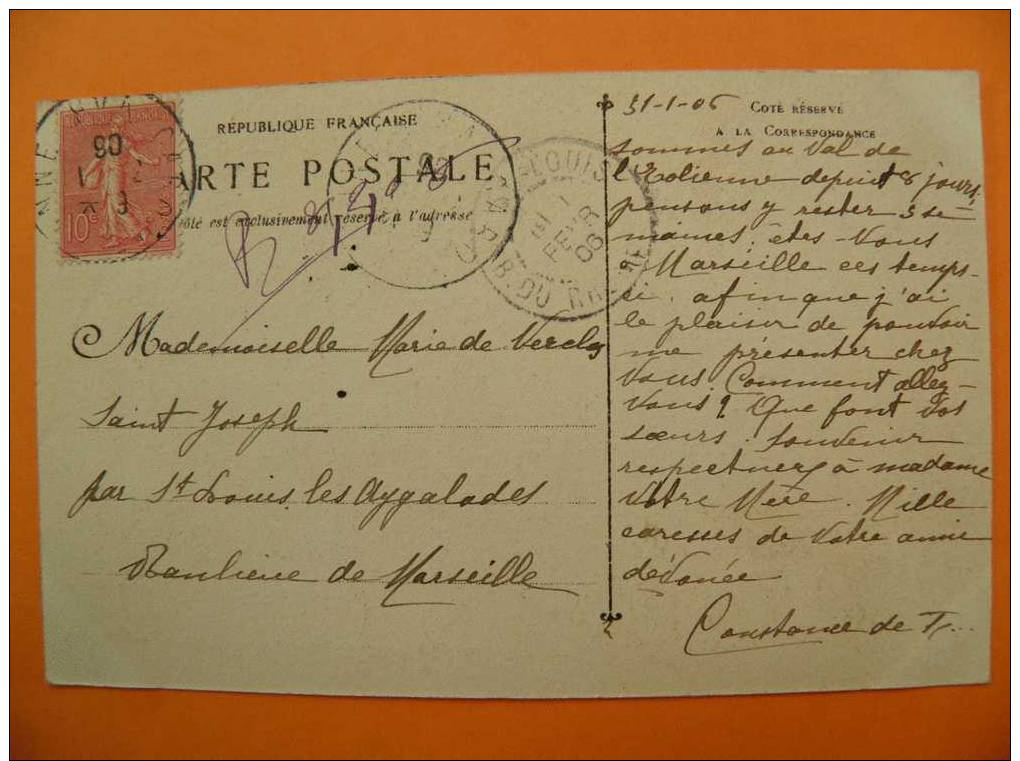 RÉPUBLIQUE FRANÇAISE
CARTE POSTALE
côté est exclusivement réservé à l'adresse
10c
Mademoiselle Marie de Verclos
Saint Joseph
par St Louis les Aygalades
Banlieue de Marseille
ST LOUIS
1 FEVR 06
B. DU RHONE
COTÉ RÉSERVÉ
A LA CORRESPONDANCE
31-1-06
sommes au Val de
l'Eolienne depuis 8 jours,
pensons y rester 3 se-
maines, êtes-Vous
Marseille ces temps-
ci, afin que j'ai
le plaisir de pouvoir
me présenter chez
Vous. Comment allez-
Vous? Que font Vos
sœurs. Souvenir
respectueux à madame
Votre Mère. Mille
caresses de Votre amie
dévouée
Constance de T...